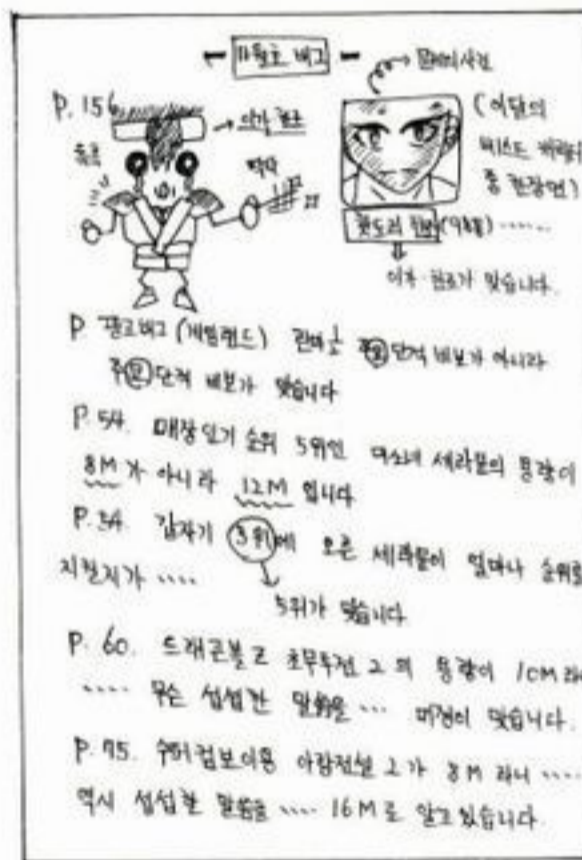 11월호 버그
문제의 사진
P. 156
이가 철조
(이달의
비스트
중 한장면)
(98쪽) ......
이 맞습니다.
P 광고 버그 (게임랜드) 란마½
단적 비보가 아니라
단적 비보가 맞습니다
P. 54. 매장 인기 순위 5위인 미소녀 세라문의 용량이
8M가 아니라 12M 입니다
P. 54. 갑자기 3위에 오른 세라문이 얼마나 순위를
지킬지가 ....
5위가 맞습니다.
P. 60. 드래곤볼 Z 초무투전 2의 용량이 10M 라니
..... 무슨 섭섭한 말씀을 ... 이 맞습니다.
P. 75. 슈퍼컴보이용 아랑전설 2가 8M 라니 .....
역시 섭섭한 말씀을 .... 16M로 알고 있습니다.